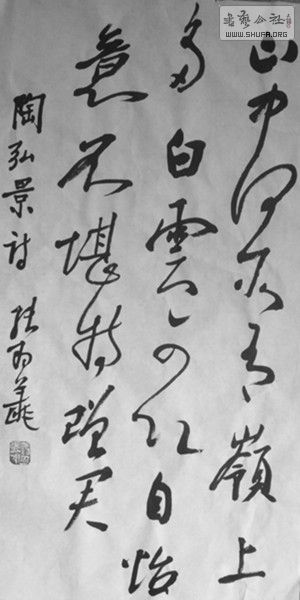 山中何所有嶺上
多白雲自怡
意不堪持贈君
陶弘景詩
書藝公社
WWW.SHUFA.ORG